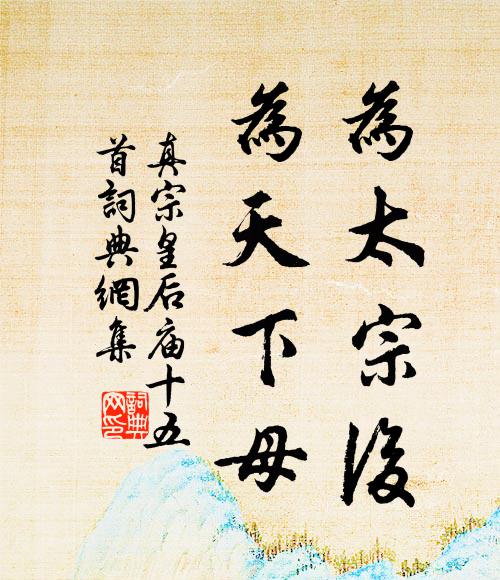 為太宗後
為天下母
真宗皇后庙十五
首詞典網集
詞典
网印